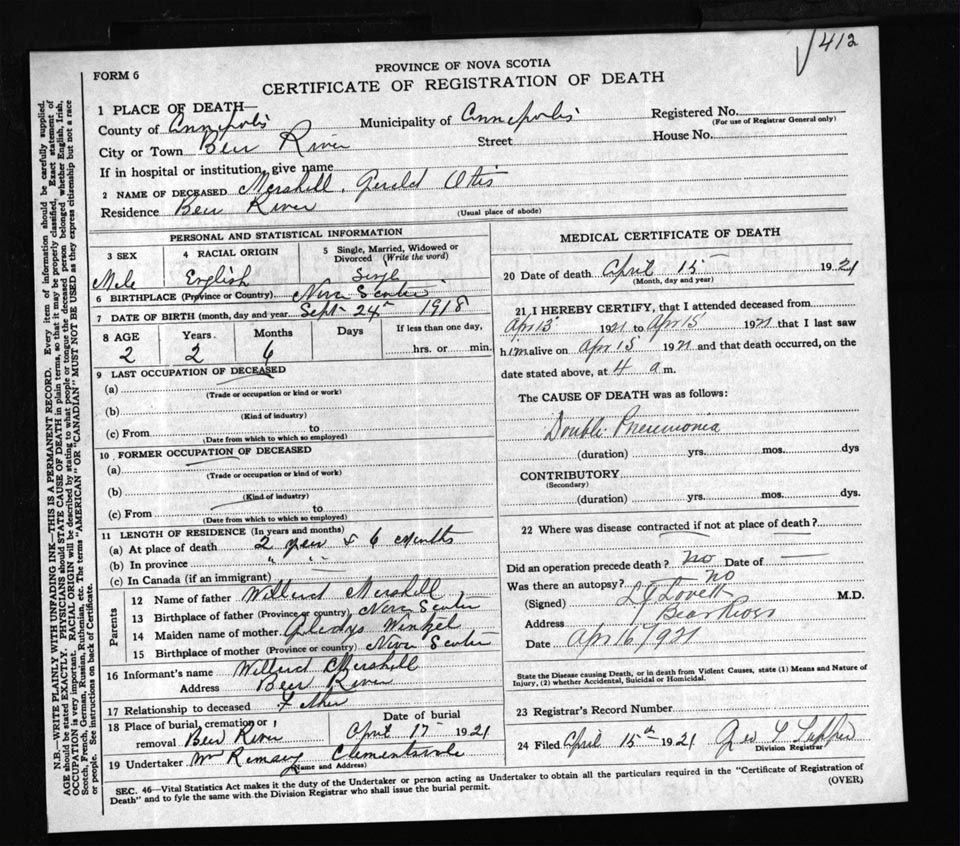 412
FORM 6
PROVINCE OF NOVA SCOTIA
CERTIFICATE OF REGISTRATION OF DEATH
1 PLACE OF DEATH—
County of Annapolis Municipality of Annapolis Registered No.
(For use of Registrar General only)
City or Town Bear River Street House No.
If in hospital or institution, give name
2 NAME OF DECEASED Marshall, Gerald Otis
Residence Bear River (Usual place of abode)
PERSONAL AND STATISTICAL INFORMATION
3 SEX 4 RACIAL ORIGIN 5 Single, Married, Widowed or Divorced (Write the word)
Male English Single
6 BIRTHPLACE (Province or Country) Nova Scotia
7 DATE OF BIRTH (month, day and year) Sept 24th 1918
8 AGE Years Months Days If less than one day,
2 2 6 hrs. or min.
9 LAST OCCUPATION OF DECEASED
(a)
(Trade or occupation or kind or work)
(b)
(Kind of industry)
(c) From to
(Date from which to which so employed)
10 FORMER OCCUPATION OF DECEASED
(a)
(Trade or occupation or kind of work)
(b)
(Kind of industry)
(c) From to
(Date from which to which so employed)
11 LENGTH OF RESIDENCE (In years and months)
(a) At place of death 2 year & 6 months
(b) In province " "
(c) In Canada (if an immigrant)
Parents
12 Name of father Willard Marshall
13 Birthplace of father (Province or country) Nova Scotia
14 Maiden name of mother Gladys Winkel
15 Birthplace of mother (Province or country) Nova Scotia
16 Informant's name Willard Marshall
Address Bear River
17 Relationship to deceased Father
18 Place of burial, cremation or removal Bear River Date of burial April 17 1921
19 Undertaker Wm Clementsvale
(Name and Address)
MEDICAL CERTIFICATE OF DEATH
20 Date of death April 15 1921
(Month, day and year)
21 I HEREBY CERTIFY, that I attended deceased from
Apr 13 1921 to Apr 15 1921 that I last saw
him alive on Apr 15 1921 and that death occurred, on the
date stated above, at 4 a.m.
The CAUSE OF DEATH was as follows:
Double Pneumonia
(duration) yrs. mos. dys
CONTRIBUTORY
(Secondary)
(duration) yrs. mos. dys.
22 Where was disease contracted if not at place of death?
Did an operation precede death? no Date of
Was there an autopsy? no
(Signed) L J Lovett M.D.
Address Bear River
Date Apr 16, 1921
State the Disease causing Death, or in death from Violent Causes, state (1) Means and Nature of
Injury, (2) whether Accidental, Suicidal or Homicidal.
23 Registrar's Record Number
24 Filed April 15th 1921 Geo
Division Registrar
SEC. 46—Vital Statistics Act makes it the duty of the Undertaker or person acting as Undertaker to obtain all the particulars required in the "Certificate of Registration of
Death" and to fyle the same with the Division Registrar who shall issue the burial permit. (OVER)
N.B.—WRITE PLAINLY WITH UNFADING INK—THIS IS A PERMANENT RECORD. Every item of information should be carefully supplied.
AGE should be stated EXACTLY. PHYSICIANS should STATE CAUSE OF DEATH in plain terms, so that it may be properly classified. Exact statement of
OCCUPATION is very important. RACIAL ORIGIN will be described by stating to what people or tongue the deceased person belonged whether English, Irish,
Scotch, French, German, Russian, Ruthenian, etc. The terms "AMERICAN" OR "CANADIAN" MUST NOT BE USED as they express citizenship but not a race
or people. See instructions on back of Certificate.